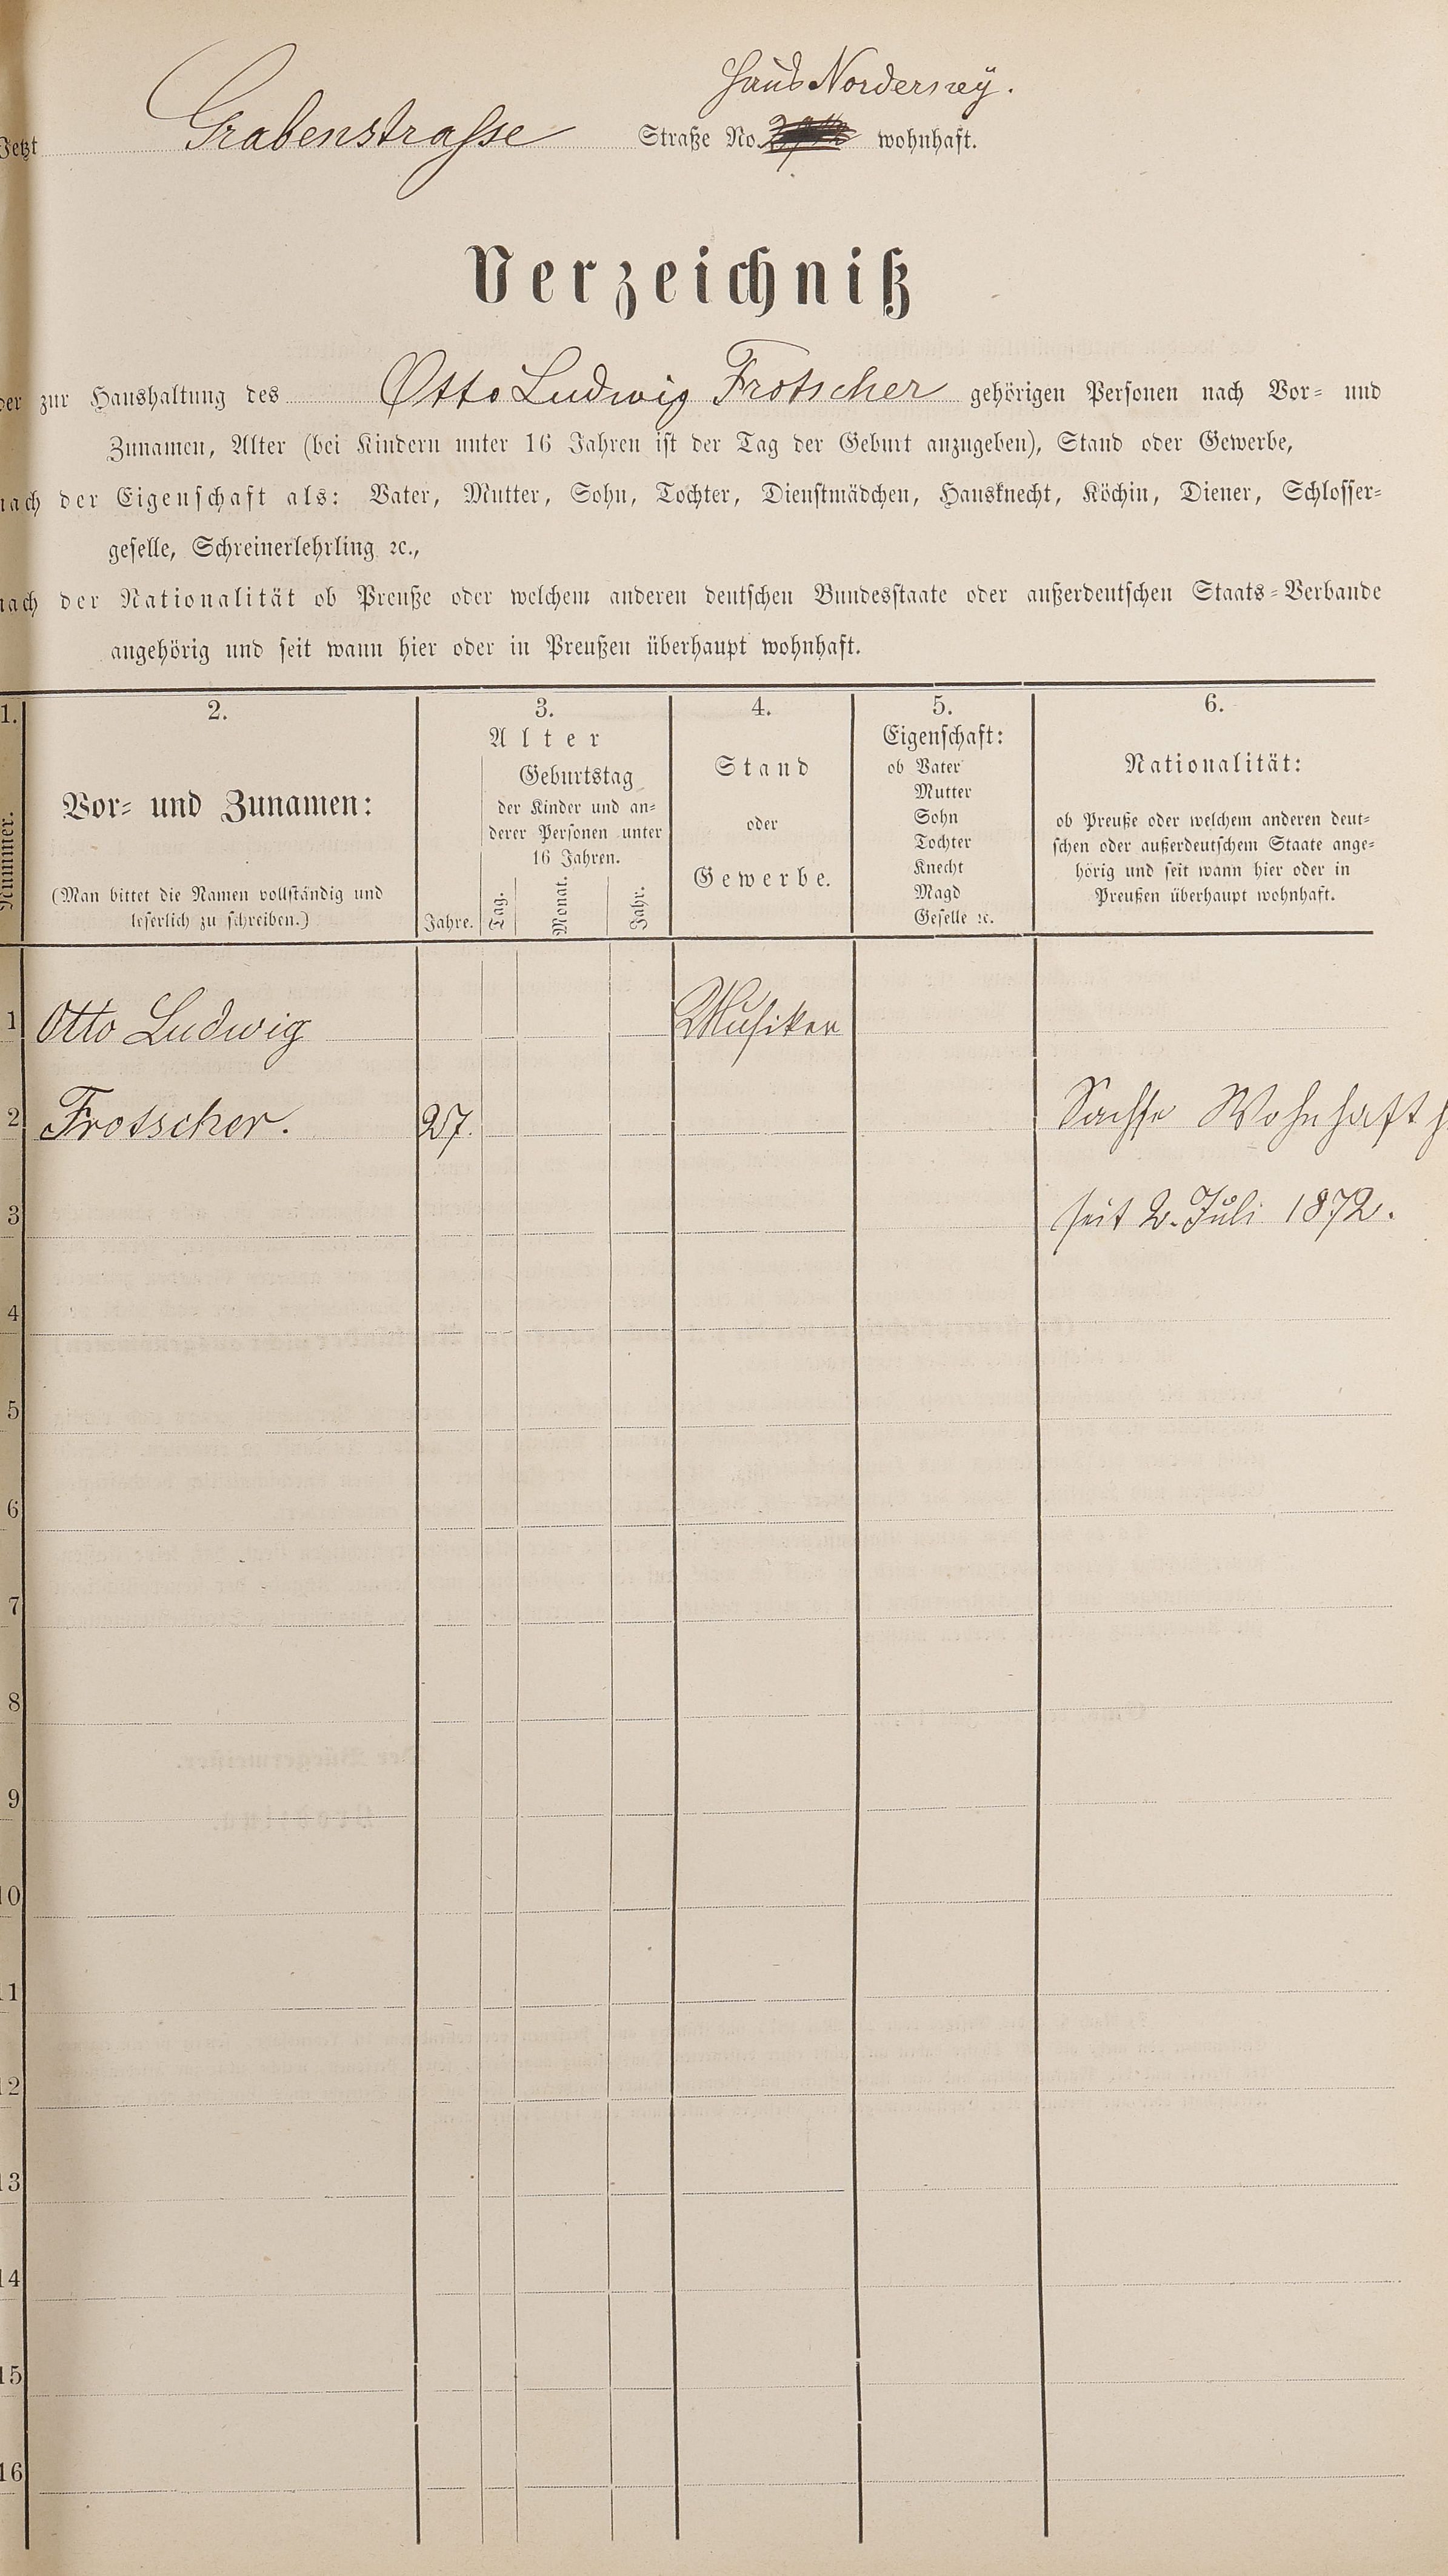 Haus Norderney.
Jetzt Grabenstrasse Straße No. wohnhaft.
Verzeichniß
der zur Haushaltung des Otto Ludwig Frotscher gehörigen Personen nach Vor- und
Zunamen, Alter (bei Kindern unter 16 Jahren ist der Tag der Geburt anzugeben), Stand oder Gewerbe,
nach der Eigenschaft als: Vater, Mutter, Sohn, Tochter, Dienstmädchen, Hausknecht, Köchin, Diener, Schlosser-
geselle, Schreinerlehrling ꝛc.,
nach der Nationalität ob Preuße oder welchem anderen deutschen Bundesstaate oder außerdeutschen Staats-Verbande
angehörig und seit wann hier oder in Preußen überhaupt wohnhaft.
1.
Nummer.
2.
Vor- und Zunamen:
(Man bittet die Namen vollständig und
leserlich zu schreiben.)
3.
Alter
Jahre.
Geburtstag
der Kinder und an-
derer Personen unter
16 Jahren.
Tag.
Monat.
Jahr.
4.
Stand
oder
Gewerbe.
5.
Eigenschaft:
ob Vater
Mutter
Sohn
Tochter
Knecht
Magd
Geselle ꝛc.
6.
Nationalität:
ob Preuße oder welchem anderen deut-
schen oder außerdeutschem Staate ange-
hörig und seit wann hier oder in
Preußen überhaupt wohnhaft.
1 Otto Ludwig Musiker
2 Frotscher. 27. Sachse Wohnhaft
3 seit 2. Juli 1872.
4
5
6
7
8
9
10
11
12
13
14
15
16